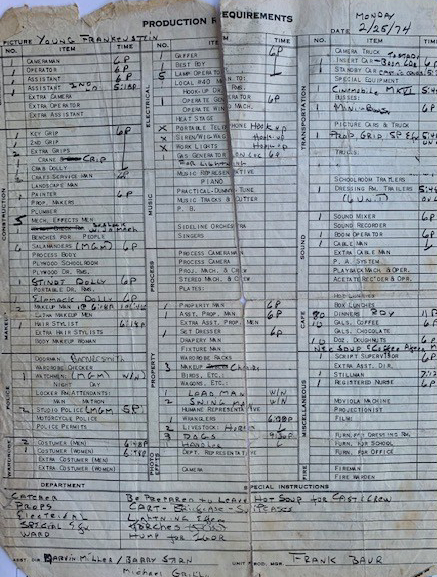 PRODUCTION REQUIREMENTS
MONDAY
PICTURE YOUNG FRANKENSTEIN
DATE 2/25/74
NO. ITEM TIME
CAMERAMAN 6P
1 OPERATOR 6P
1 ASSISTANT 6P
1 ASSISTANT 2ND 5:18P
EXTRA CAMERA
EXTRA OPERATOR
EXTRA ASSISTANT
1 KEY GRIP 6P
1 2ND GRIP
2 EXTRA GRIPS
CRANE GRIP
CRAB DOLLY
CRAFT SERVICE MAN 6P
LANDSCAPE MAN
PAINTER 6P
PROP. MAKERS
PLUMBER
5 MECH. EFFECTS MEN
WIND MACH
BENCHES FOR PEOPLE
6 SALAMANDERS (MGM) 6P
PROCESS BODY
PLYWOOD SCHOOLROOM
PLYWOOD DR. RMS.
1 STINDT DOLLY 6P
PORTABLE DR. RMS.
DOLLY 6P
2 MAKEUP MAN
EXTRA MAKEUP MEN
1 HAIR STYLIST 6:14P
EXTRA HAIR STYLISTS
BODY MAKEUP WOMAN
DOORMAN
WARDROBE CHECKER
WATCHMEN (MGM)
NIGHT DAY
LOCKER RM ATTENDANTS:
MAN MATRON
2 STUDIO POLICE (MGM) 5P
MOTORCYCLE POLICE
POLICE PERMITS
2 COSTUMER (MEN) 6:48P
1 COSTUMER (WOMEN) 6:48P
EXTRA COSTUMER (MEN)
EXTRA COSTUMER (WOMEN)
NO. ITEM TIME
ELECTRICAL
1 GAFFER 6P
1 BEST BOY
5 LAMP OPERATORS
LOCAL #40 MAN TO:
HOOK-UP DR. RMS.
1 OPERATE GENERATOR 6P
OPERATE WIND MACH.
HEAT STAGE
X PORTABLE TELEPHONE HOOK-UP
X SIREN/WIG-WAG HOOKUP
X WORK LIGHTS HOOKUP
1 GAS GENERATOR 6P
FOR LIGHTING
MUSIC
MUSIC REPRESENTATIVE
PIANO
PRACTICAL-DUMMY-TUNE
MUSIC TRACKS & CUTTER
P. B.
SIDELINE ORCHESTRA
SINGERS
PROCESS
PROCESS CAMERAMAN
PROCESS CAMERA
PROJ. MACH. & CREW
STEREO MACH. & CREW
PLATES:
PROPERTY
1 PROPERTY MAN 6P
1 ASST. PROP. MAN 6P
EXTRA ASST. PROP. MEN
1 SET DRESSER 6P
DRAPERY MAN
FIXTURE MAN
WARDROBE RACKS
3 MAKEUP CHAIRS
BIRDS, ETC.:
WAGONS, ETC.:
1 LEAD MAN W/N
2 SWING MEN W/N
HUMANE REPRESENTATIVE
WRANGLERS 6:18P
2 LIVESTOCK: HORSES
7 DOGS 9:30P
HANDLER
PHOTO EFFECTS
DEPT. REPRESENTATIVE
CAMERA
NO. ITEM TIME
TRANSPORTATION
CAMERA TRUCK
1 INSERT CAR
1 STANDBY CAR
SPECIAL EQUIPMENT
CINEMOBILE MK VI
BUSSES:
PICTURE CARS & TRUCK
1 PROP, GRIP, SP EFX
SCHOOLROOM TRAILERS
1 DRESSING RM. TRAILERS
(6 UNIT)
SOUND
1 SOUND MIXER 6P
SOUND RECORDER
1 BOOM OPERATOR 6P
1 CABLE MAN
P. A. SYSTEM
PLAYBACK MACH & OPER.
ACETATE REC'DER & OPR.
CAFE
HOT LUNCHES
BOX LUNCHES
80 DINNERS BOY 11P
10 GALS. COFFEE 6P
GALS. CHOCOLATE
10 DOZ. DOUGHNUTS 6P
MISCELLANEOUS
SCRIPT SUPERVISOR 6P
EXTRA ASST. DIR.
1 STILLMAN
1 REGISTERED NURSE 6P
MOVIOLA MACHINE
PROJECTIONIST
FILM:
FURN. FOR DRESSING RM.
FURN. FOR SCHOOL
FURN. FOR OFFICE
FIRE
FIREMAN
FIRE WARDEN
DEPARTMENT SPECIAL INSTRUCTIONS
CATERER BE PREPARED TO LEAVE HOT SOUP FOR CAST & CREW
PROPS CART - BRIEFCASE - SUITCASES
ELECTRICAL LIGHTNING
SPECIAL EFX TORCHES
WARD HUMP FOR IGOR
ASST. DIR MARVIN MILLER / BARRY STERN
MICHAEL
UNIT PROD. MGR. FRANK BAUR